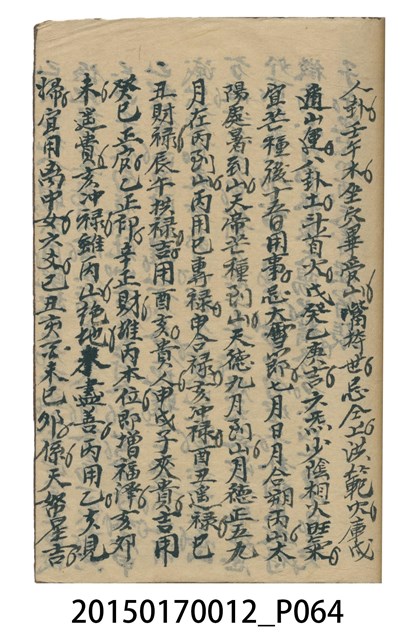 人卦壬午木坐穴畢爰山嘴持世忌仝上洪範穴庫戊
遁山運八卦土斗首火戊癸乙庚吉六氣少陰相火旺氣
宜芒種後十二日用事忌大雪節七月日月合朔丙山太
陽處暑到山天帝芒種到山天德九月到山月德正五九
月在丙到山丙用巳專祿申合祿亥冲祿酉丑遥祿巳
丑財祿辰午拱祿吉用酉亥貴人申戌子夾貴吉用
癸巳正官乙正印辛正財雖丙本位即增福澤亥卯
未遥貴亥冲祿雖丙山絕地未盡善丙用乙亥見
歸宜用离中女六爻己丑亥酉未巳卯係天帑星吉
20150170012_P064